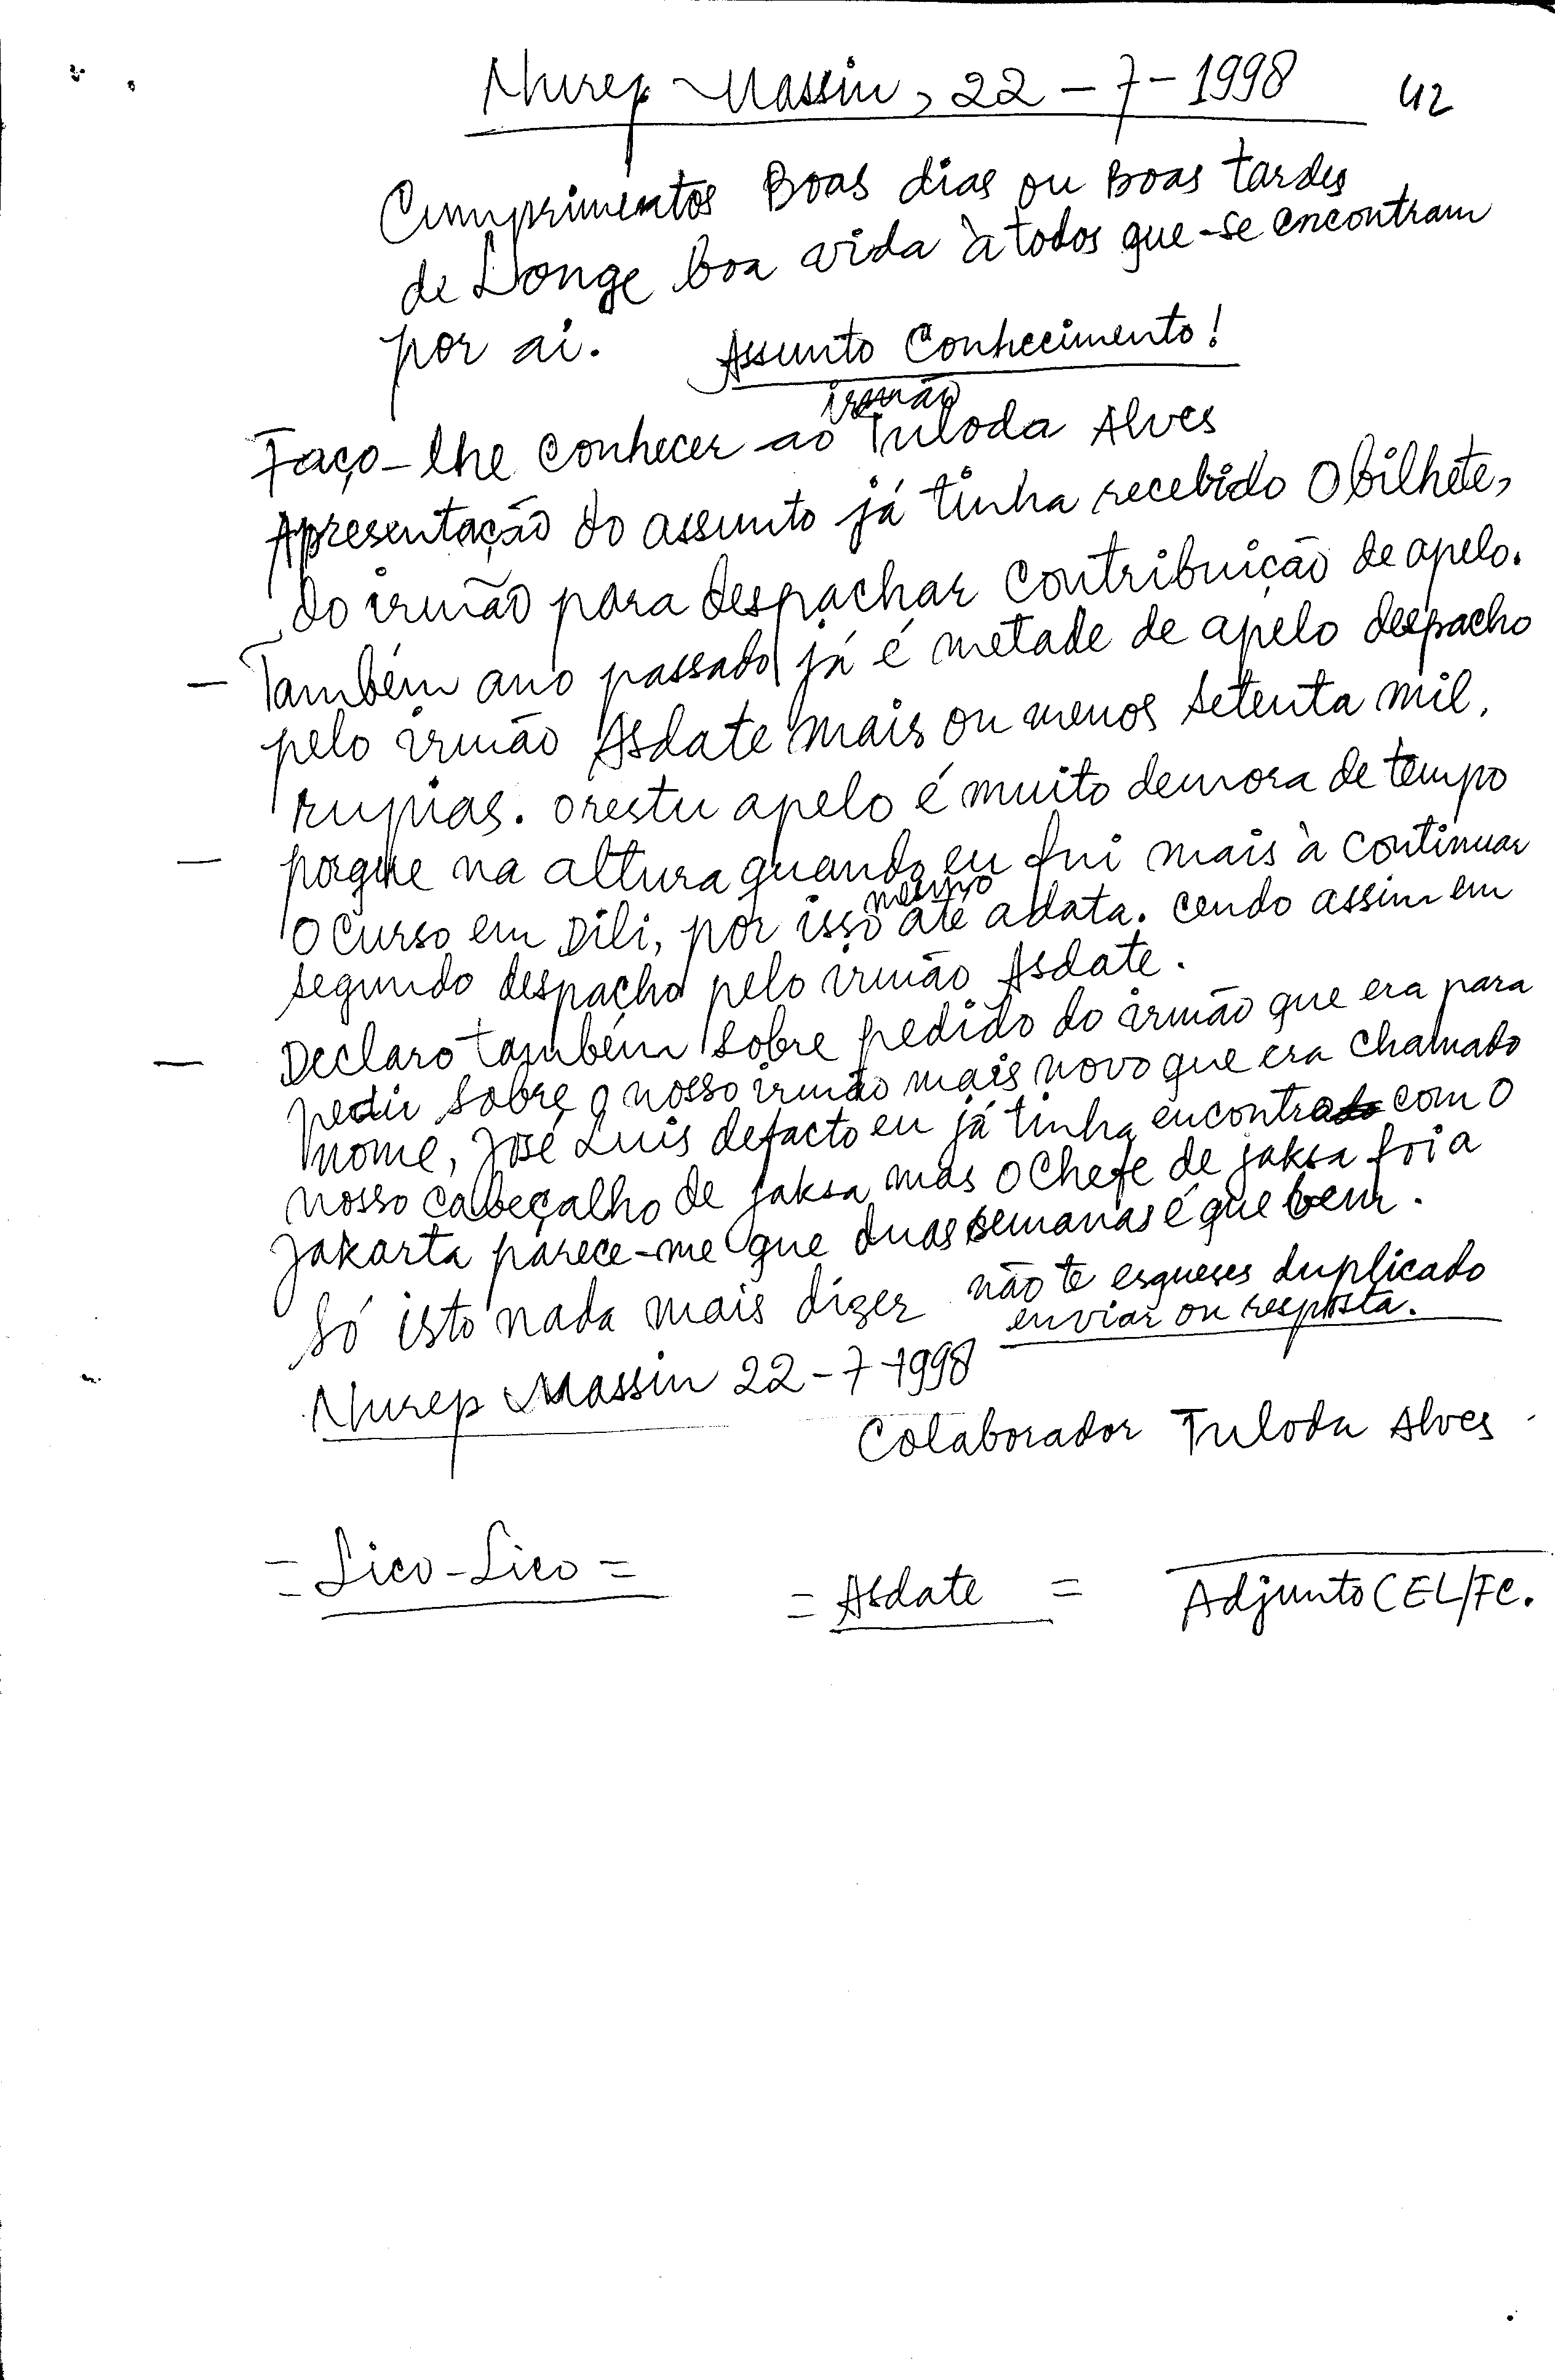 Nurep Massin, 22-7-1998 42
Cumprimentos Boas dias ou Boas tardes
de Longe boa vida à todos que-se encontram
por ai. Assunto Conhecimento!
irmão
Faço-lhe conhecer ao Tuloda Alves
Apresentação do assunto já tinha recebido O bilhete,
do irmão para despachar contribuição de apelo.
- Também ano passado já é metade de apelo despacho
pelo irmão Asdate mais ou menos setenta mil.
rupias. o restu apelo é muito demora de tempo
- porque na altura quando eu fui mais à continuar
mesmo
O curso em Dili, por isso até a data. cendo assim em
segundo despacho pelo irmão Asdate.
- Declaro também sobre pedido do irmão que era para
pedir sobre o nosso irmão mais novo que era chamado
nome, José Luis defacto eu já tinha encontrado com O
nosso cabeçalho de jaksa mas O Chefe de jaksa foi a
Jakarta parece-me que duas semanas é que bem.
Só isto nada mais dizer não te esqueses duplicado
enviar ou resposta.
Nurep Massin 22-7-1998
Colaborador Tuloda Alves
= Lico-Lico =
= Asdate = Adjunto CEL/FC.